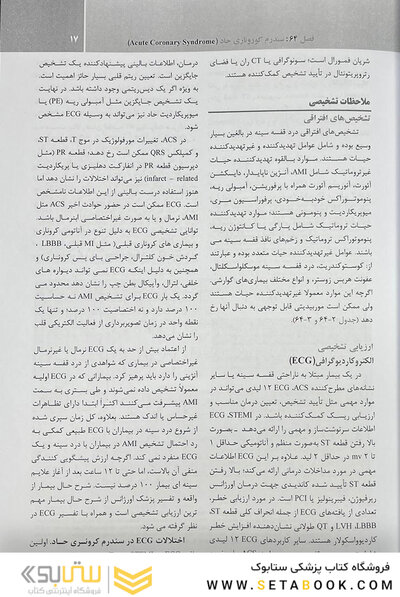 فصل ۶۴: سندرم کوروناری حاد (Acute Coronary Syndrome)
۱۷
شریان فمورال است؛ سونوگرافی یا CT ران یا فضای
رتروپریتونئال در تأیید تشخیص کمک‌کننده هستند.
ملاحظات تشخیصی
تشخیص‌های افتراقی
تشخیص‌های افتراقی درد قفسه سینه در بالغین بسیار
وسیع بوده و شامل عوامل تهدیدکننده و غیرتهدیدکننده
حیات هستند. موارد بالقوه تهدیدکننده حیات
غیرتروماتیک شامل AMI، آنژین ناپایدار، دایسکشن
آئورت، آنوریسم آئورت همراه با پرفوریشن، آمبولی ریه
پنوموتوراکس خودبه‌خودی، پرفوراسیون مری،
میوپریکاردیت و پنومونی هستند؛ موارد تهدیدکننده
حیات تروماتیک شامل پارگی یا کانتیوژن ریه،
پنوموتوراکس تروماتیک و زخم‌های نافذ قفسه سینه می
باشند. عوامل غیرتهدیدکننده حیات متعدد بوده و عبارتند
از: کوستوکندریت، درد قفسه سینه موسکلواسکلتال،
عفونت هرپس زوستر، و انواع مختلف بیماری‌های گوارشی.
اگرچه این موارد معمولا غیرتهدیدکننده حیات هستند
ولی ممکن است موربیدیتی قابل توجهی به دنبال آنها رخ
دهد (جدول ۲-۶۴ و ۳-۶۴).
ارزیابی تشخیصی
الکتروکاردیوگرافی (ECG)
در یک بیمار مبتلا به ناراحتی قفسه سینه یا سایر
نشانه‌های مطرح‌کننده ACS، ECG ۱۲ لیدی می‌تواند در
موارد مهمی مثل تأیید تشخیص، تعیین درمان مناسب و
ارزیابی ریسک کمک‌کننده باشد. در ECG، STEMI
اطلاعات سرنوشت‌ساز و مهمی را ارائه می‌دهد - بصورت
بالا رفتن قطعه ST به‌صورت منظم و آناتومیکی حداقل ۱
تا ۲ mv در حداقل ۲ لید. علاوه بر این ECG اطلاعات
مهمی در مورد مداخلات درمانی ارائه می‌کند؛ بالا رفتن
قطعه ST تأیید شده کاندیدی جهت درمان اورژانس
ریپرفیوژن، فیبرینولیز یا PCI است. در مورد ارزیابی خطر،
تعدادی از یافته‌های ECG از جمله انحراف کلی قطعه ST،
LVH، LBBB و QT طولانی نشان‌دهنده افزایش خطر
کاردیوواسکولار هستند. سایر کاربردهای ECG ۱۲ لیدی
درمان، اطلاعات بالینی پیشنهادکننده یک تشخیص
جایگزین است. تعیین ریتم قلبی بسیار حائز اهمیت است.
به ویژه اگر یک دیس‌ریتمی وجود داشته باشد. در نهایت
یک تشخیص جایگزین مثل آمبولی ریه (PE) یا
میوپریکاردیت حاد نیز می‌تواند به وسیله ECG مشخص
شود.
در ACS، تغییرات مورفولوژیک در موج T، قطعه ST،
و کمپلکس QRS ممکن است رخ دهد؛ قطعه PR (مثل
دپرسیون قطعه PR در انفارکت دهلیزی یا پریکاردیت
infarct – related) نیز می‌تواند اختلالات را نشان دهد اما
هنوز استفاده درست بالینی از این اطلاعات نامشخص
است. ECG ممکن است در حضور حوادث اخیر ACS مثل
AMI، نرمال و یا به صورت غیراختصاصی ابنرمال باشد.
توانایی تشخیصی ECG به دلیل تنوع در آناتومی کرونری
و بیماری های کرونری قبلی( مثل MI قبلی، LBBB،
گردش خون کلترال، جراحی بای پس کروناری) و
همچنین به دلیل اینکه ECG نمی تواند دیواره های
خلفی، لترال، و آپیکال بطن چپ را نشان دهد محدود می
گردد. یک بار ECG برای تشخیص AMI نه حساسیت
۱۰۰ درصد دارد و نه اختصاصیت ۱۰۰ درصد؛ و تنها یک
نقطه واحد در زمان تصویربرداری از فعالیت الکتریکی قلب
را نشان می‌دهد.
از اعتماد بیش از حد به یک ECG نرمال یا غیرنرمال
غیراختصاصی در بیماری که شواهدی از درد قفسه سینه
آنژینی را دارد باید پرهیز کرد. بیمارانی که در ECG اولیه
معمولاً تشخیص داده نمی‌شوند و طی بستری به سمت
AMI پیشرفت می‌کنند اکثراً ابتدا دارای تظاهرات
غیرحساس یا اندک هستند. بعلاوه، کل زمان سپری شده
از شروع درد سینه در بیماران با ECG طبیعی کمکی به
رد احتمال تشخیص AMI در بیماران با درد سینه و یک
ECG منفرد نمی کند. اگرچه ارزش پیشگویی کنندگی
منفی آن بالاست، اما حتی تا ۱۲ ساعت بعد از آغاز علایم
سینه ای بیمار ۱۰۰ درصد نیست. شرح حال بیمار از
واقعه و تفسیر پزشک اورژانس از شرح حال بیمار مهم
ترین ارزیابی تشخیصی است و همراه با تفسیر ECG در
نظر گرفته می شود.
اختلالات ECG در سندرم کرونری حاد. اولین
فروشگاه کتاب پزشکی ستابوک
WWW.SETABOOK.COM
ستابوک
فروشگاه اینترنتی کتاب